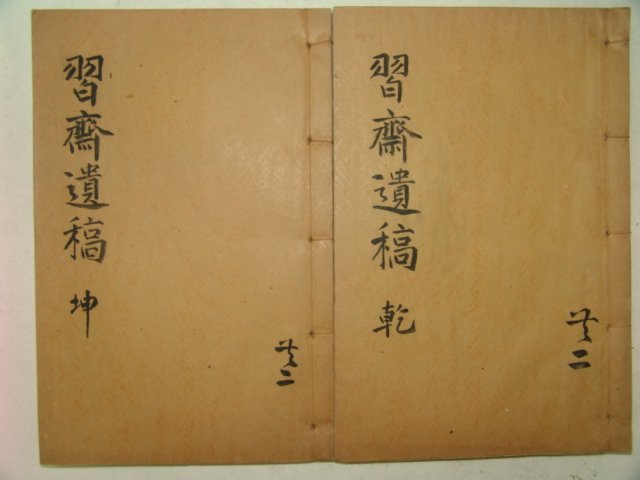 習齋遺稿 乾
共二
習齋遺稿 坤
共二